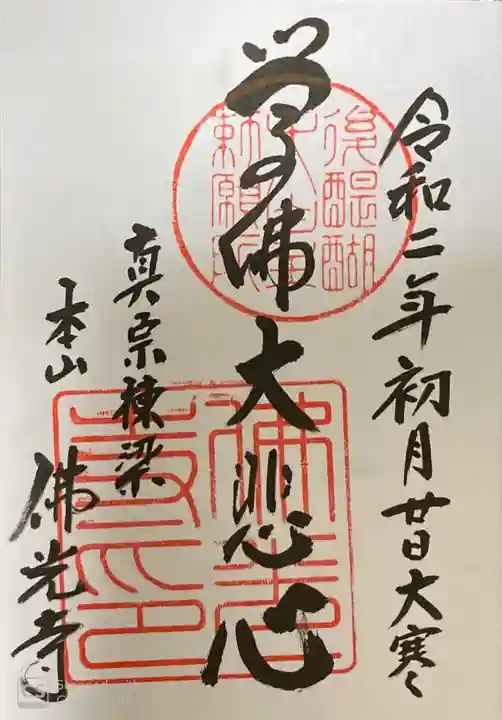 令和二年初月廿日大寒々
学佛大悲心
真宗棟梁
本山
佛光寺
後醍醐
天皇
勅願所
佛光
寺印